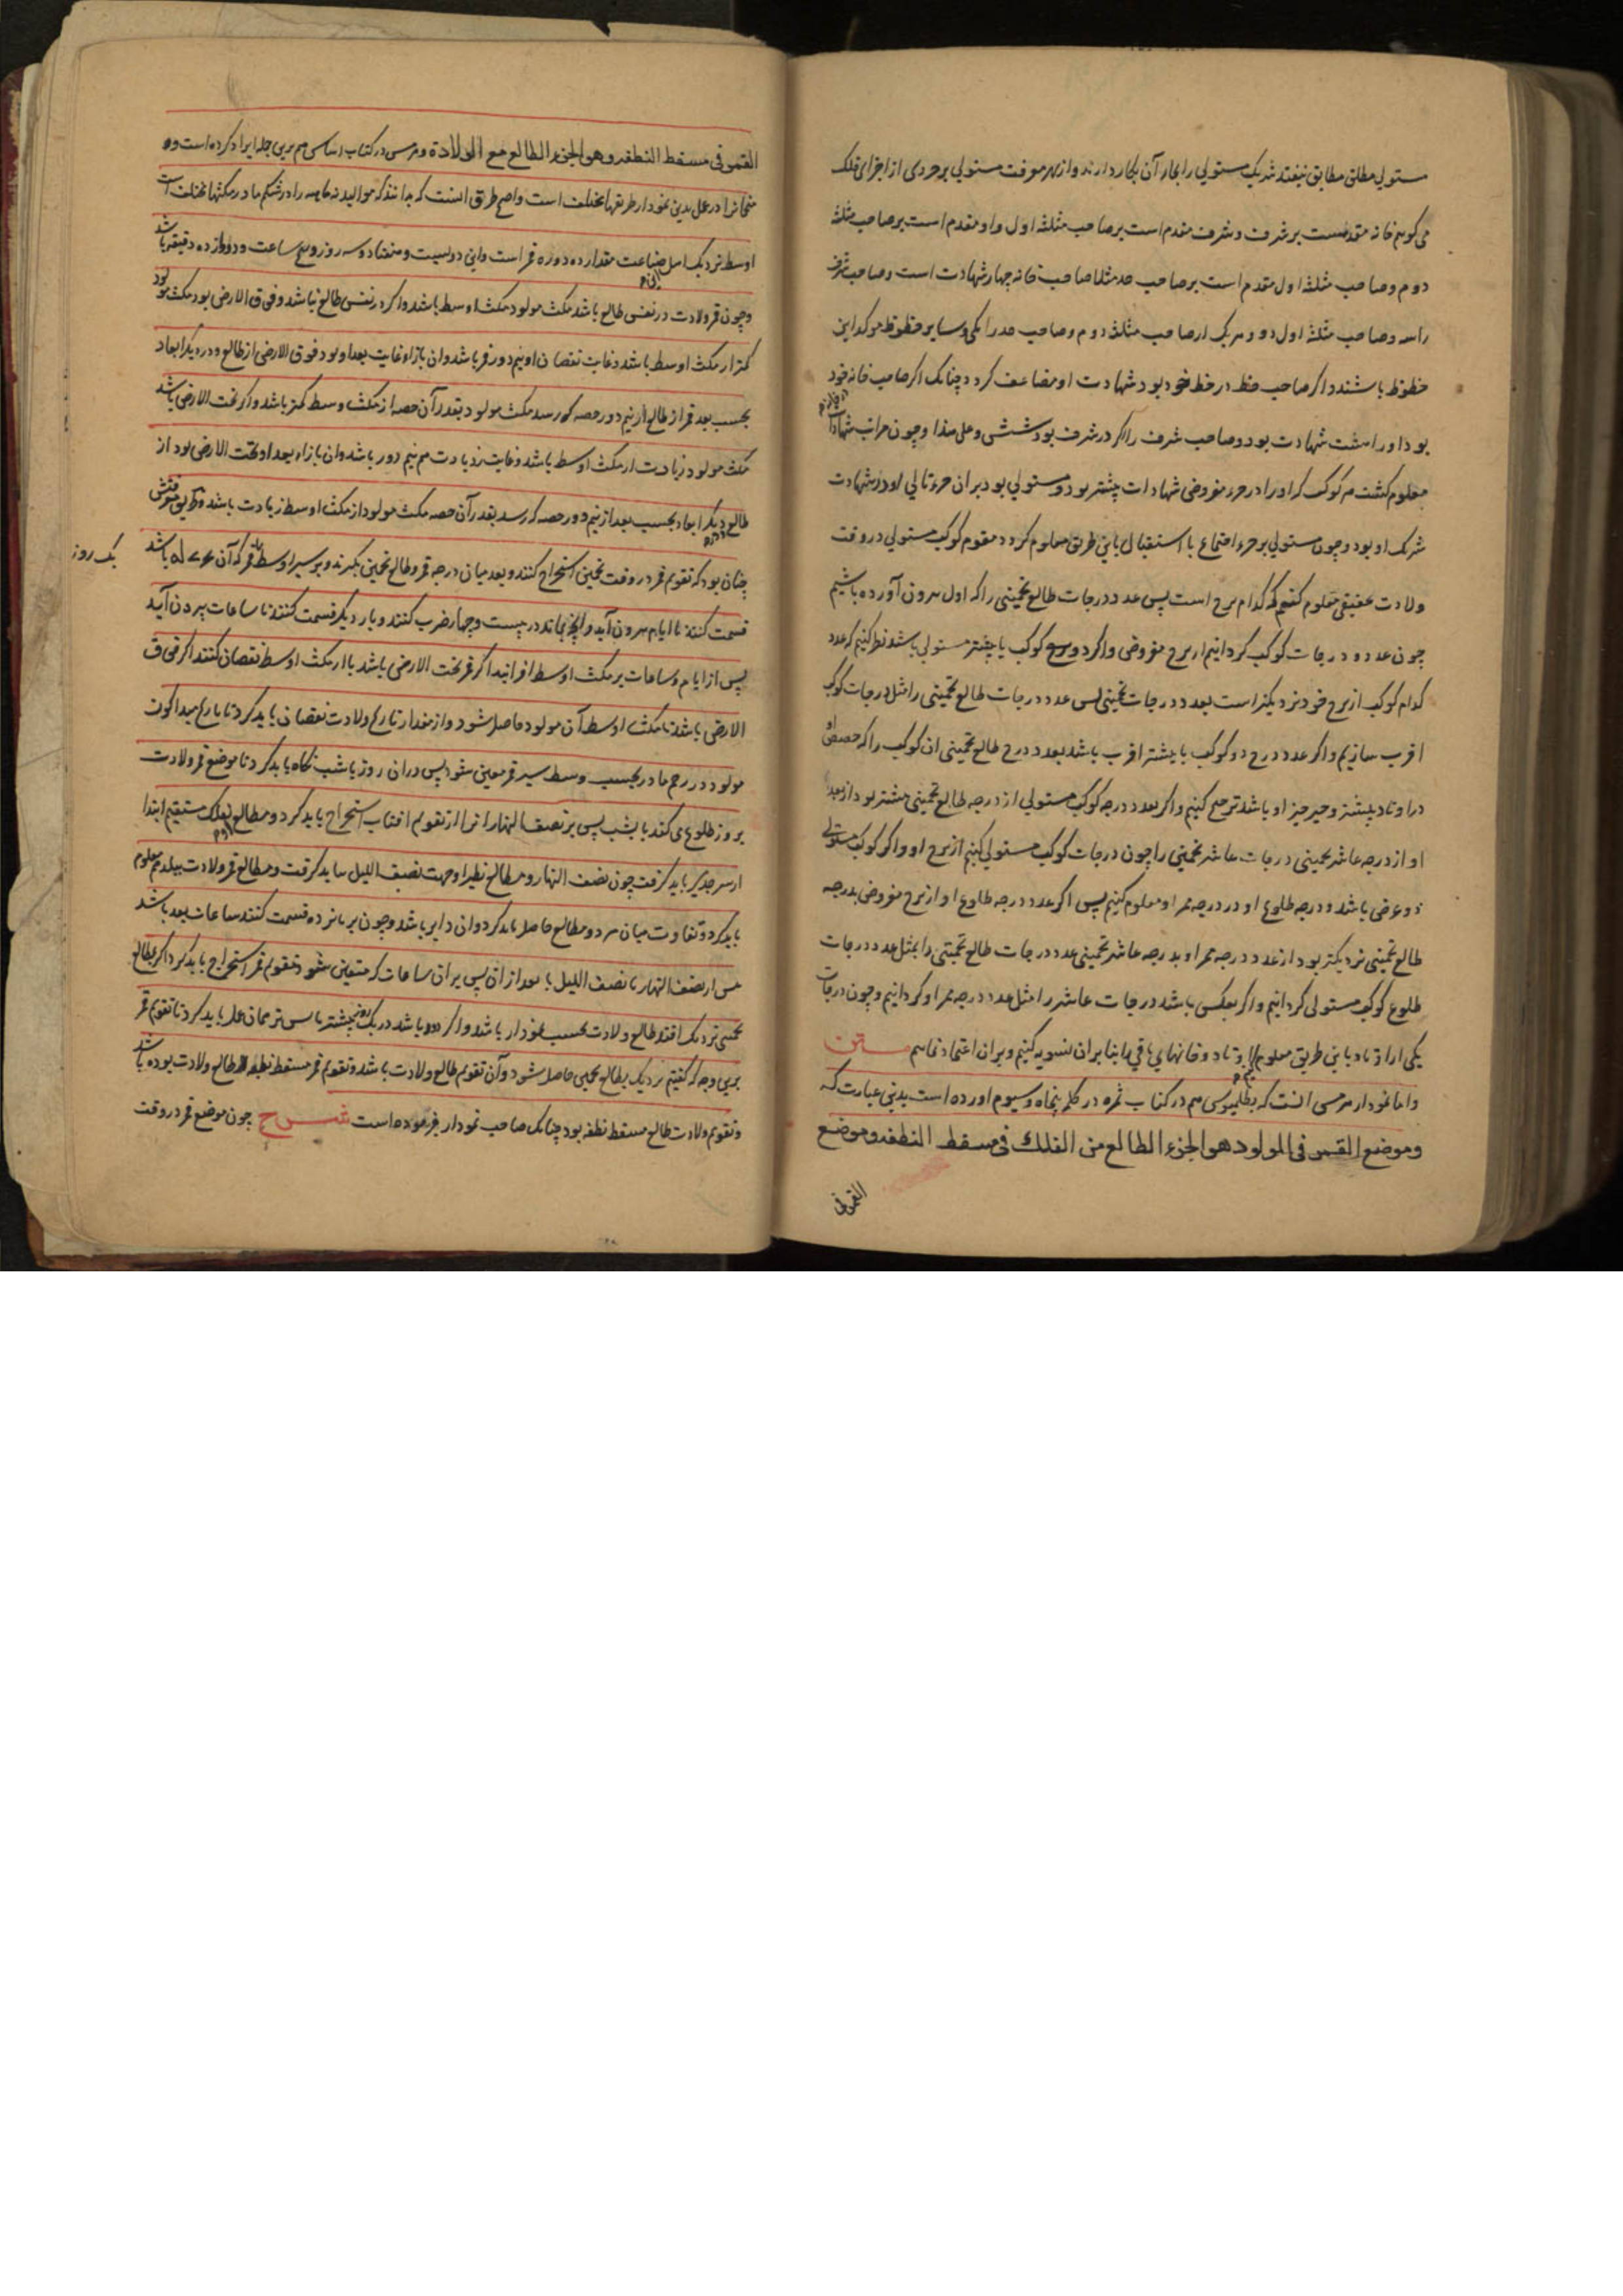 مستولی مطلق مطابق نیفتد شریک مستولی را بجای آن بکار دارند و از بهر معرفت مستولی بر جزوی از اجزای فلک
می کوییم خانه مقدمست بر شرف و شرف مقدم است بر صاحب مثلثه اول و او مقدم است بر صاحب مثلثه
دوم و صاحب مثلثه اول مقدم است بر صاحب حد مثلا صاحب خانه چهار شهادت است و صاحب شرف
راسه و صاحب مثلثه اول دو و هریک از صاحب مثلثه دوم و صاحب حد را یکی و سایر حظوظ موکد این
حظوظ باشند و اکر صاحب حظ در حظ خود بود شهادت او مضاعف کردد چنانک اکر صاحب خانه خود
بود او را هشت شهادت بود و صاحب شرف را اکر در شرف بود شش و علی هذا و چون مراتب شهادات
معلوم کشت هر کوکب که او را در جزء مفروض شهادات بیشتر بود مستولی بود بر آن جزء و تالی او در شهادت
شریک او بود و چون مستولی بر جزء اجتماع یا استقبال باین طریق معلوم کردد مقوم کوکب مستولی در وقت
ولادت حقیقی معلوم کنیم که کدام برج است پس عدد درجات طالع تخمینی را که اول بیرون آورده باشیم
چون عدد درجات کوکب کردانیم از برج مفروض و اکر دو کوکب یا بیشتر مستولی باشد نظر کنیم که عدد
کدام کوکب از برج خود نزدیکتر است بعدد درجات تخمینی پس عدد درجات طالع تخمینی را مثل درجات کوکب
اقرب سازیم و اکر عدد درج دو کوکب یا بیشتر اقرب باشد بعدد درج طالع تخمینی ان کوکب را که حصص او
در اوتاد بیشتر و حیز حیز او باشد ترجیح کنیم و اکر بعد درجه کوکب مستولی از درجه طالع تخمینی بیشتر بود از بعد
او از درجه عاشر تخمینی درجات عاشر تخمینی را چون درجات کوکب مستولی کنیم از برج او و اکر کوکب مستولی
ذو عرض باشد و درجه طلوع او و درجه ممر او معلوم کنیم پس اکر عدد درجه طلوع او از برج مفروض بدرجه
طالع تخمینی نزدیکتر بود از عدد درجه ممر او بدرجه عاشر تخمینی عدد درجات طالع تخمینی را بمثل عدد درجات
طلوع کوکب مستولی کردانیم و اکر بعکس باشد درجات عاشر را مثل عدد درجه ممر او کردانیم و چون درجات
یکی از اوتاد باین طریق معلوم اوتاد و خانهای باقی را بنا بر ان تسویه کنیم و بر ان اعتماد نماییم متن
و اما نمودار هرمس انست که بطلمیوس هم در کتاب ثمره در کلمه پنجاه و سیوم اورده است بدین عبارت که
وموضع القمر فی المولد هو الجزء الطالع من الفلک فی مسقط النطفه وموضع
القمر فی
القمر فی مسقط النطفه وهو الجزء الطالع مع الولادة و هرمس در کتاب اساس هم برین جمله ایراد کرده است و
منجمانرا در عمل بدین نمودار طریقها مختلف است و اصح طریق انست که بدانند که موالید را در شکم مادر مکثها مختلف است
اوسط نزدیک اهل صناعت مقدار ده دوره قمر است و این دویست و هفتاد و سه روز و پنج ساعت و دوازده دقیقه باشد
و چون قمر ولادت در نفس طالع باشد مکث مولود مکث اوسط باشد و اکر در نفس طالع نباشد و فوق الارض بود مکث مولود
کمتر از مکث اوسط باشد و غایت نقصان او نیم دور قمر باشد و ان بازاء غایت بعد او بود فوق الارض از طالع و در دیکر ابعاد
بحسب بعد قمر از طالع از نیم دور حصه که رسد مکث مولود بقدر آن حصه از مکث اوسط کمتر باشد و اکر تحت الارض باشد
مکث مولود زیادت از مکث اوسط باشد و غایت زیادت هم نیم دور باشد و ان بازاء بعد او تحت الارض بود از
طالع و دیکر ابعاد بحسب بعد از نیم دور حصه که رسد بقدر آن حصه مکث مولود از مکث اوسط زیادت باشد و طریق معرفتش
چنان بود که تقویم قمر در وقت تخمین استخراج کنند و بعد میان درجه قمر و طالع تخمین بکیرند و بر سیر اوسط قمر که آن باشد
یک روز
قسمت کنند تا ایام بیرون آید و آنچه بماند در بیست و چهار ضرب کنند و بار دیکر قسمت کنند تا ساعات بیرون آید
پس از ایام و ساعات بر مکث اوسط افزایند اکر قمر تحت الارض باشد یا از مکث اوسط نقصان کنند اکر فوق
الارض باشد تا مکث اوسط آن مولود حاصل شود و از مقدار تاریخ ولادت نقصان باید کرد تا تاریخ مبدا کون
مولود در رحم مادر بحسب وسط سیر قمر معین شود پس در ان روز یا شب نکاه باید کرد تا موضع قمر ولادت
بروز طلوع می کند یا بشب پس بر نصف النهار انرا از تقویم افتاب استخراج باید کرد و مطالع بفلک مستقیم ابتدا
از سر جدی باید کرفت چون نصف النهار و مطالع نظیر او جهت نصف اللیل باید کرفت و مطالع قمر ولادت ببلد هم معلوم
باید کرد و تفاوت میان هر دو مطالع حاصل باید کرد و ان دایر باشد و چون بر پانزده قسمت کنند ساعات بعد باشد
پس از نصف النهار یا نصف اللیل یا بعد از ان پس بر ان ساعات که متعین شود تقویم قمر استخراج باید کرد اکر بطالع
تخمینی نزدیک افتد طالع ولادت بحسب نمودار باشد و اکر دور باشد در یک روز پیشتر یا پس تر همان عمل باید کرد تا تقویم قمر
برین وجه که کفتیم نزدیک بطالع تخمینی حاصل شود و آن تقویم طالع ولادت باشد و تقویم قمر مسقط نطفه طالع ولادت بوده باشد
و تقویم ولادت طالع مسقط نطفه بود چنانک صاحب نمودار فرموده است شرح چون موضع قمر در وقت